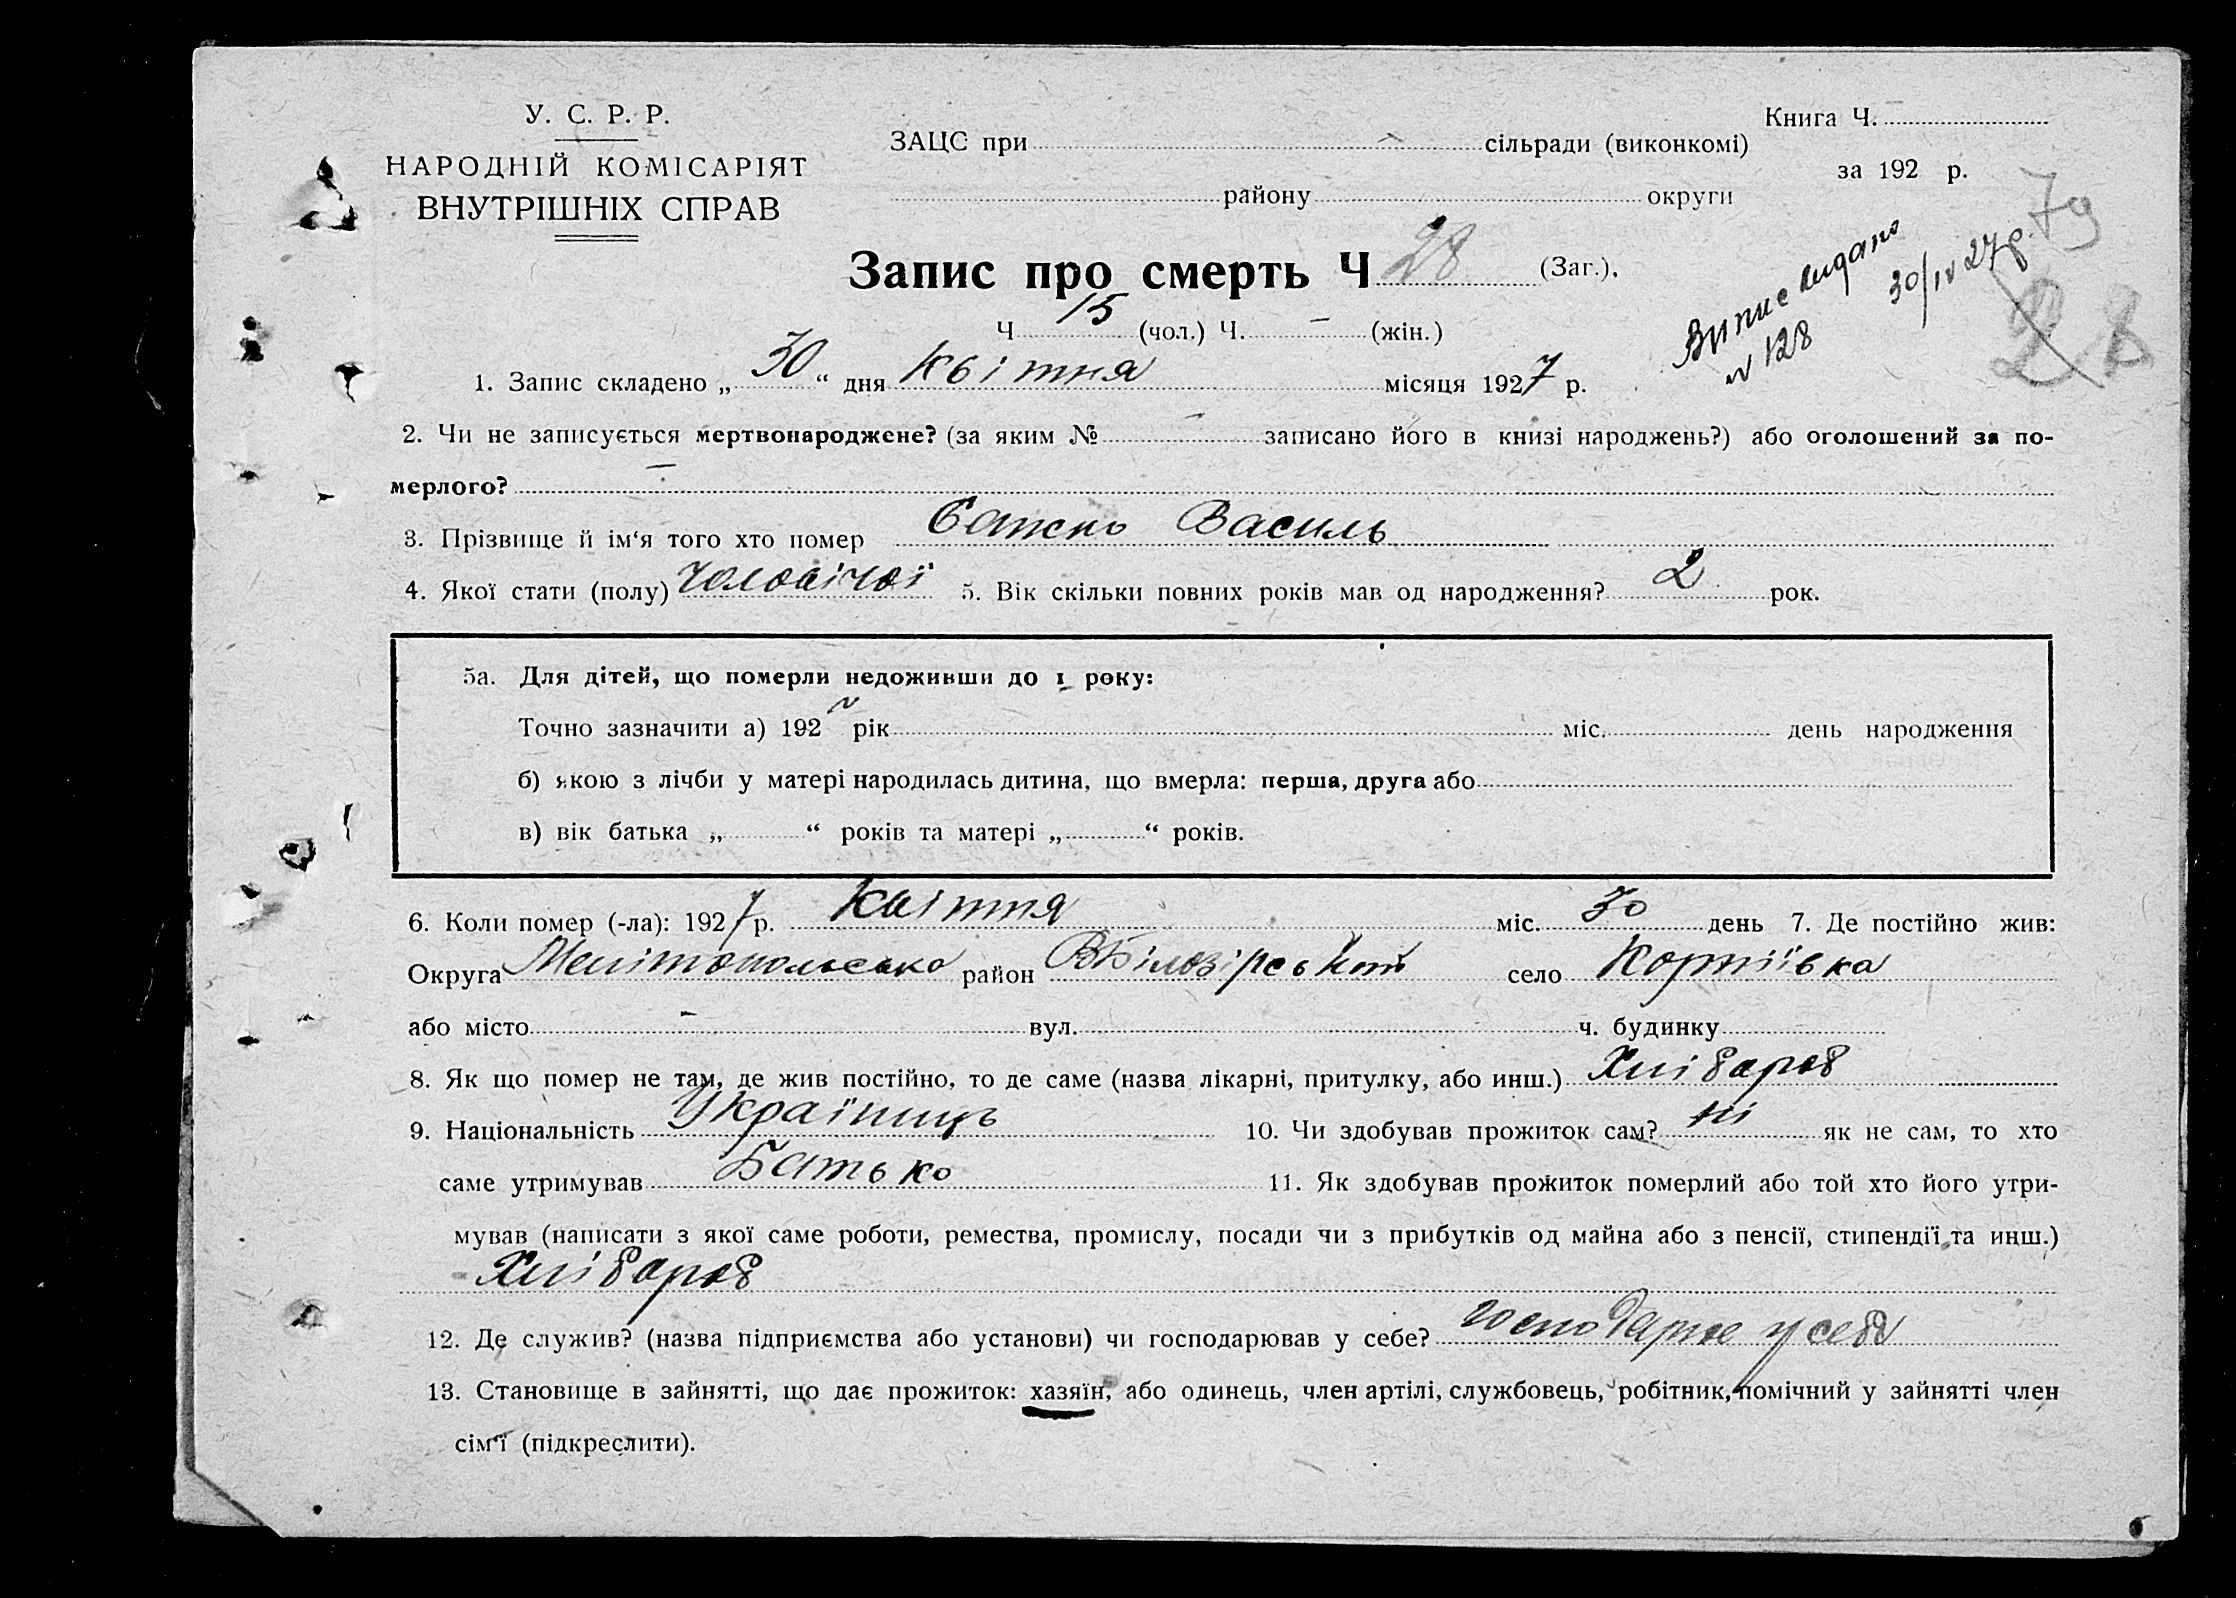 У. С. Р. Р.
НАРОДНІЙ КОМІСАРІЯТ
ВНУТРІШНІХ СПРАВ
ЗАЦС при сільради (виконкомі)
району округи
Книга Ч.
за 192 р.
79
28
Запис про смерть Ч 28 (Заг.).
Випис видано
№ 128 30/IV 27 р.
Ч 15 (чол.) Ч. — (жін.)
1. Запис складено „ 30 “ дня квітня місяця 1927 р.
2. Чи не записується мертвонароджене? (за яким № записано його в книзі народжень?) або оголошений за по-
мерлого? —
3. Прізвище й ім‘я того хто помер Василь
4. Якої стати (полу) чоловічої 5. Вік скільки повних років мав од народження? 2 рок.
5а. Для дітей, що померли недоживши до 1 року:
Точно зазначити а) 192 рік міс. день народження
б) якою з лічби у матері народилась дитина, що вмерла: перша, друга або
в) вік батька „ “ років та матері „ “ років.
6. Коли помер (-ла): 1927 р. Квітня міс. 30 день 7. Де постійно жив:
Округа Мелітопольська район село
або місто — вул. ч. будинку
8. Як що помер не там, де жив постійно, то де саме (назва лікарні, притулку, або инш.) Хлібороб
9. Національність Українець 10. Чи здобував прожиток сам? ні як не сам, то хто
саме утримував Батько 11. Як здобував прожиток померлий або той хто його утри-
мував (написати з якої саме роботи, ремества, промислу, посади чи з прибутків од майна або з пенсії, стипендії та инш.)
Хлібороб
12. Де служив? (назва підприємства або установи) чи господарював у себе? у себе
13. Становище в зайнятті, що дає прожиток: хазяїн, або одинець, член артілі, службовець, робітник, помічний у зайнятті член
сім‘ї (підкреслити).